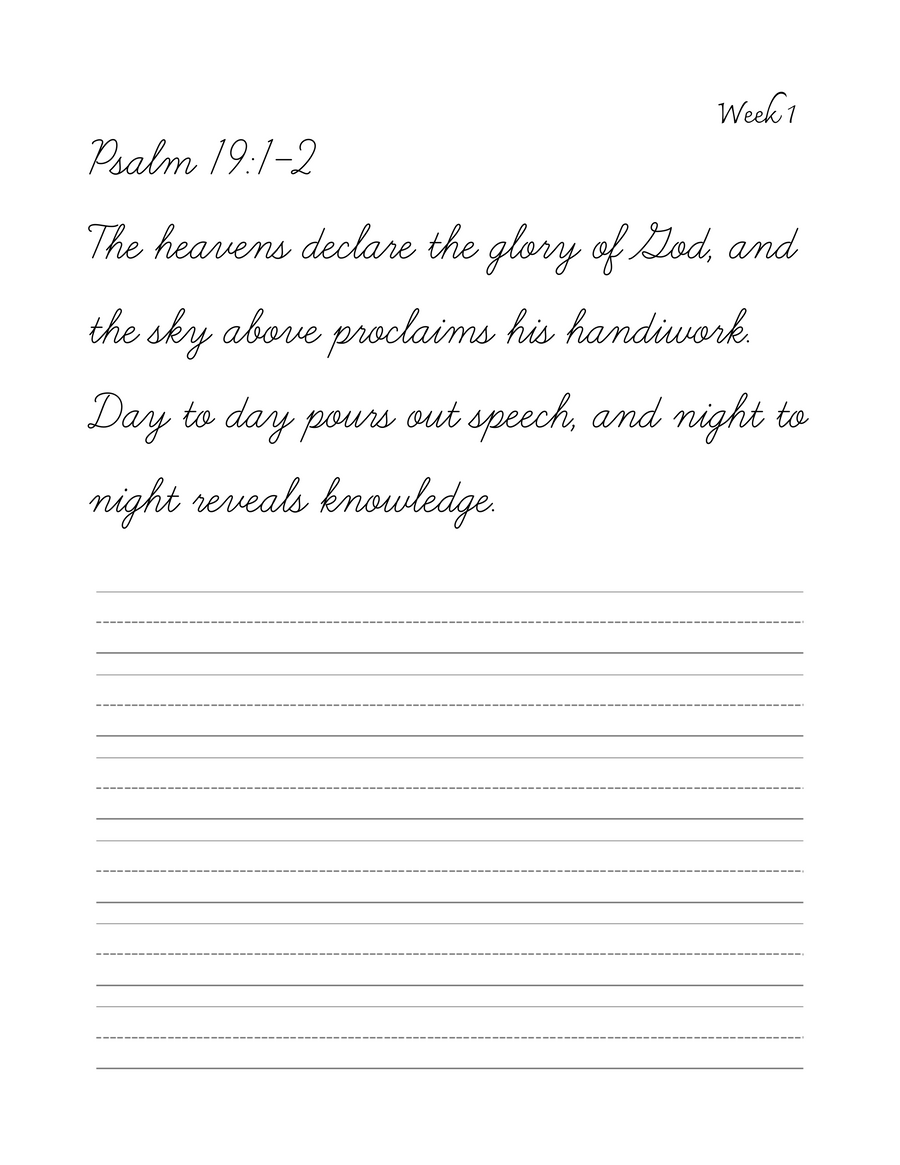 Week 1
Psalm 19:1-2
The heavens declare the glory of God, and
the sky above proclaims his handiwork.
Day to day pours out speech, and night to
night reveals knowledge.